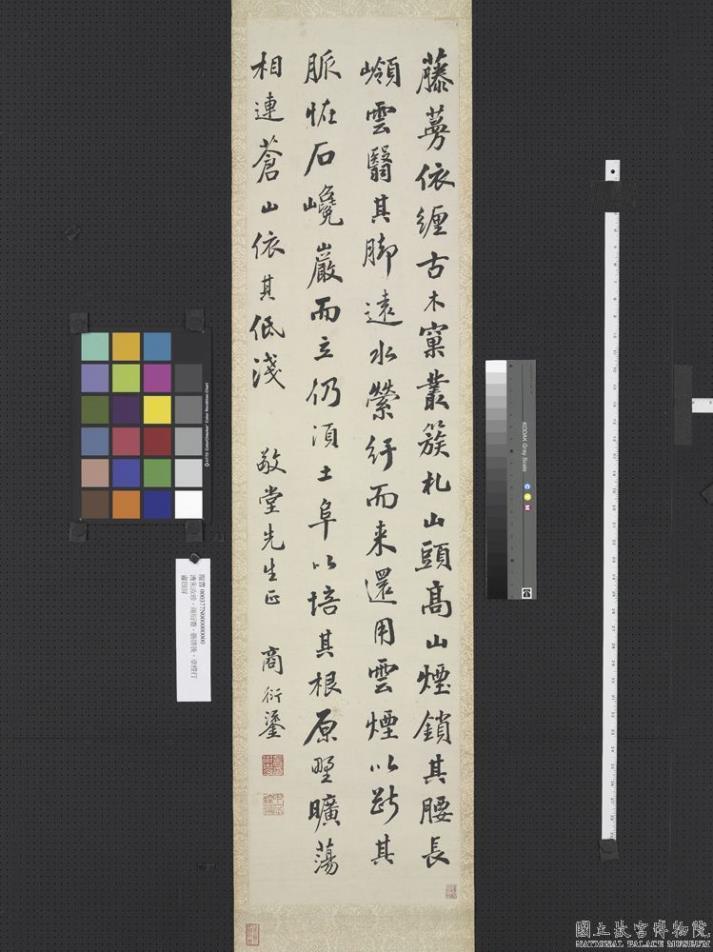 藤蔓依纏古木窠叢簇札山頭高山煙鎖其腰長
嶺雲翳其脚遠水縈紆而来還用雲煙以斷其
脈恠石巉巖而立仍須土阜以培其根原野曠蕩
相連蒼山依其低淺
敬堂先生正
商衍鎏
KODAK Gray Scale
C Y M
國立故宮博物院
NATIONAL PALACE MUSEUM